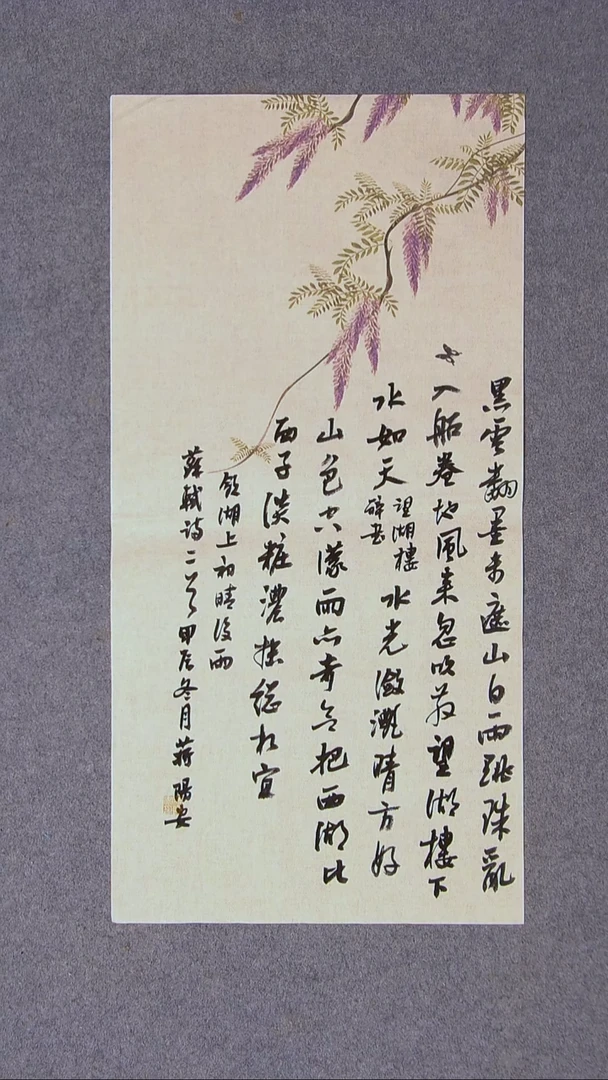 黑雲翻墨未遮山白雨跳珠亂
入船卷地風来忽吹散望湖樓下
水如天
望湖樓
醉書
水光瀲灧晴方好
山色空濛雨亦奇欲把西湖比
西子淡粧濃抹總相宜
飲湖上初晴後雨
蘇軾詩二首甲辰冬月蔣陽安